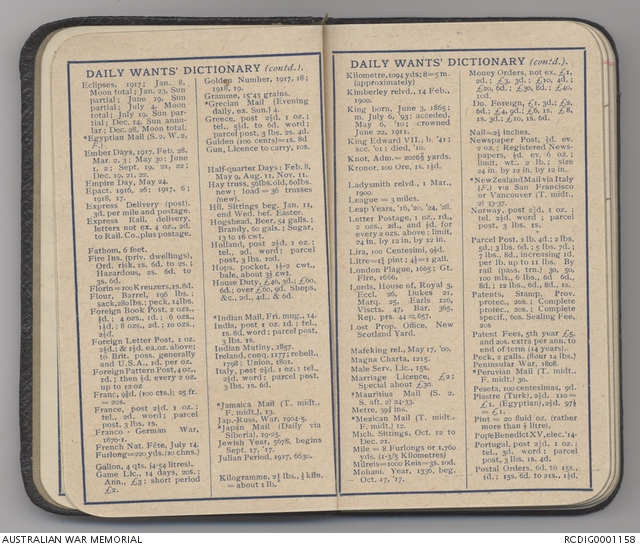 DAILY WANTS' DICTIONARY (contd.).
Eclipses, 1917: Jan. 8,
Moon total; Jan. 23, Sun
partial; June 19, Sun
partial; July 4, Moon
total; July 19, Sun par-
tial; Dec. 14, Sun annu-
lar; Dec. 28, Moon total.
*Egyptian Mail (S. 2, W. 2,
F.)
Ember Days, 1917, Feb. 28,
Mar. 2, 3; May 30; June
1, 2; Sept. 19, 21, 22;
Dec. 19, 21, 22.
Empire Day, May 24.
Epact. 1916, 26; 1917, 6;
1918, 17.
Express Delivery (post).
3d. per mile and postage.
Express Rail. delivery,
letters not ex. 4 oz., 2d.
to Rail. Co., plus postage.
Fathom, 6 feet.
Fire Ins. (priv. dwellings),
Ord. risk, 1s. 6d. to 2s.;
Hazardous, 2s. 6d. to
3s. 6d.
Florin=100 Kreuzers, 1s. 8d.
Flour, Barrel, 196 lbs.;
sack, 280 lbs.; peck, 14 lbs.
Foreign Book Post, 2 ozs.,
½d.; 4 ozs., 1d.; 6 ozs.,
1½d.; 8 ozs., 2d.; 10 ozs.,
2½d.
Foreign Letter Post, 1 oz.
2½d.; & 1½d. ea. oz. above;
to Brit. poss. generally
and U.S.A., 1d. per oz.
Foreign Pattern Post, 4 oz.,
1d.; then ½d. every 2 oz.
up to 12oz.
Franc, 9½d. (100 cts.); 25 fr.
= 20s.
France, post 2½d. 1 oz.;
tel., 2d. word; parcel
post, 3 lbs. 1s.
Franco - German War,
1870-1.
French Nat. Fête, July 14.
Furlong=220 yds. (10 chns.)
Gallon, 4 qts. (4·54 litres).
Game Lic., 14 days, 20s.;
Ann., £3; short period
£2.
Golden Number, 1917, 18;
1918, 19.
Gramme, 15'43 grains.
*Grecian Mail (Evening
daily, ex. Sun.) 4.
Greece, post 2½d. 1 oz.;
tel., 5½d. to 6d. word;
parcel post, 3 lbs. 2s. 4d.
Gulden (100 cents)=1s. 8d
Gun, Licence to carry, 10s.
Half-quarter Days: Feb. 8,
May 9, Aug. 11, Nov. 11.
Hay truss, 56lbs. old, 60lbs.
new; load = 36 trusses
(new).
Hil. Sittings beg. Jan. 11,
end Wed. bef. Easter.
Hogshead, Beer, 54 galls.;
Brandy, 60 gals.; Sugar,
13 to 16 cwt.
Holland, post 2½d. 1 oz.;
tel., 2d. word; parcel
post, 3 lbs. 10d.
Hops, pocket, 1½-2 cwt.,
bale, about 3½ cwt.
House Duty, £40, 3d.; £60,
6d.; over £60, 9d. Shops,
&c., 2d., 4d., & 6d.
*Indian Mail, Fri. mng., 14.
India, post 1 oz. 1d.; tel.,
1s. 8d. word; parcel post,
3 lbs. 1s.
Indian Mutiny, 1857.
Ireland, conq. 1177; rebell.,
1798; Union, 1801.
Italy, post 2½d. 1 oz.; tel.,
2½d. word; parcel post,
3 lbs. 1s. 6d.
*Jamaica Mail (T. midt.,
F. midt.), 13.
Jap.-Russ. War, 1904-5.
*Japan Mail (Daily via
Siberia), 19-25.
Jewish Year, 5678, begins
Sept. 17, '17.
Julian Period, 1917, 6630.
Kilogramme, 2½ lbs., ½ kilo.
= about 1 lb.
DAILY WANTS' DICTIONARY (contd.).
Kilometre, 1094 yds; 8=5 m.
(approximately)
Kimberley relvd., 14 Feb.,
1900.
King born, June 3, 1865;
m. July 6, '93; acceded,
May 6, '10; crowned
June 22, 1911.
King Edward VII., b. '41;
acc. '01; died, '10.
Knot, Adm.= 2026⅔ yards.
Kronor, 100 Ore, 1s. 1½d.
Ladysmith relvd., 1 Mar.,
1900.
League = 3 miles.
Leap Years, '16, '20, '24, '28.
Letter Postage, 1 oz., 1d.,
2 ozs., 2d., and ½d. for
every 2 ozs. above; limit,
24 in. by 12 in. by 12 in.
Lira, 100 Centesimi, 9½d.
Litre=1¾ pint; 4½=1 gall.
London Plague, 1665; Gt.
Fire, 1666.
Lords, House of, Royal 3,
Eccl. 26, Dukes 21,
Marq. 25, Earls 126,
Viscts. 47, Bar. 365,
Rep. prs. 44=657.
Lost Prop. Office, New
Scotland Yard.
Mafeking rel., May 17, '00.
Magna Charta, 1215.
Male Serv. Lic., 15s.
Marriage Licence, £2;
Special about £30.
*Mauritius Mail (S. 2,
S. aft. 2) 24-33.
Metre, 39⅓ ins.
*Mexican Mail (T. midt.
F. midt.) 12.
Mich. Sittings, Oct. 12 to
Dec. 21.
Mile = 8 Furlongs or 1,760
yds. (1-3/5 Kilometres)
Milreis=1000 Reis=3s. 10d.
Moham. Year, 1336, beg.
— Oct. 17, '17.
Money Orders, not ex. £1,
2d.; £3, 3d.; £10, 4d.;
£20, 6d.; £30, 8d.; £40,
10d.
Do. Foreign, £1, 3d.; £2,
6d.; £4, 9d.; £6, 1s.; £8,
1s. 3d.; £10, 1s. 6d.
Nail=2¼ inches.
Newspaper Post, ½d. ev.
2 oz.; Registered News-
papers, ½d. ev. 6 oz.;
limit, wt., 2 lb.; size
24 in. by 12 in. by 12 in.
*New Zealand Mail via Italy
(F.) via San Francisco
or Vancouver (T. midt.,
2) 37-37.
Norway, post 2½d. 1 oz.;
tel., 2½d. word; parcel
post, 3 lbs. 1s.
Parcel Post, 1 lb. 4d.; 2 lbs.
5d.; 3 lbs. 6d.; 5 lbs. 7d.;
7 lbs., 8d., increasing 1d.
per lb. up to 11 lbs. By
rail (pass. trn.) 30, 50,
100 mls., 6 lbs., 6d 6d.,
8d.; 12 lbs., 6d., 8d., 1s.
Patents, Stamp, Prov.
protec., 20s.; Complete
protec., 20s.; Complete
specif., 60s. Sealing Fee,
20s
Patent Fees, 5th year £5,
and 20s. extra per ann. to
end of term (14 years).
Peck, 2 galls. (flour 14 lbs.)
Peninsular War, 1808.
*Peruvian Mail (T. midt.,
F. midt.) 30.
Peseta, 100 centesimas, 9d.
Piastre (Turk), 2½d. 110 =
£1, (Egyptian), 2½d. 97½
= £1.
Pint = 20 fluid oz. (rather
more than ½ litre).
Pope Benedict XV, elec. '14.
Portugal, post 2½d. 1 oz.;
tel., 3d. word; parcel
post, 3 lbs. 1s. 4d.
Postal Orders, 6d. to 15s.,
1d.; 15s. 6d. to 21s., 1½d.
AUSTRALIAN WAR MEMORIAL
RCDIG0001158